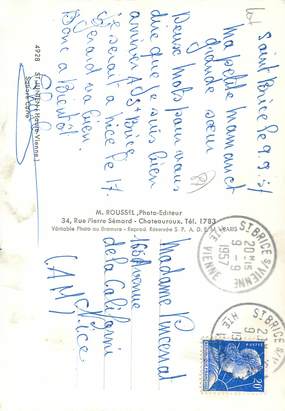 Saint Brice le 9.9.57
Ma petite maman et
grande sœur
Deux mots pour vous
dire que je suis bien
arrivée à St Brice
serait à Nice le 17
Gerard va bien.
Donc à Bientôt
4928 ST-JUNIEN (Haute-Vienne)
M. ROUSSEL, Photo-Editeur
34, Rue Pierre Sémard - Chateauroux. Tél. 1783
Véritable Photo au Bromure - Reprod. Réservée S. P. A. D. E. M. PARIS
Madame
166 Avenue
de la Californi
Nice
(AM)
ST BRICE S/VIENNE
20H15
9-9
1957
HTE VIENNE
ST BRICE S/V
HTE
20F